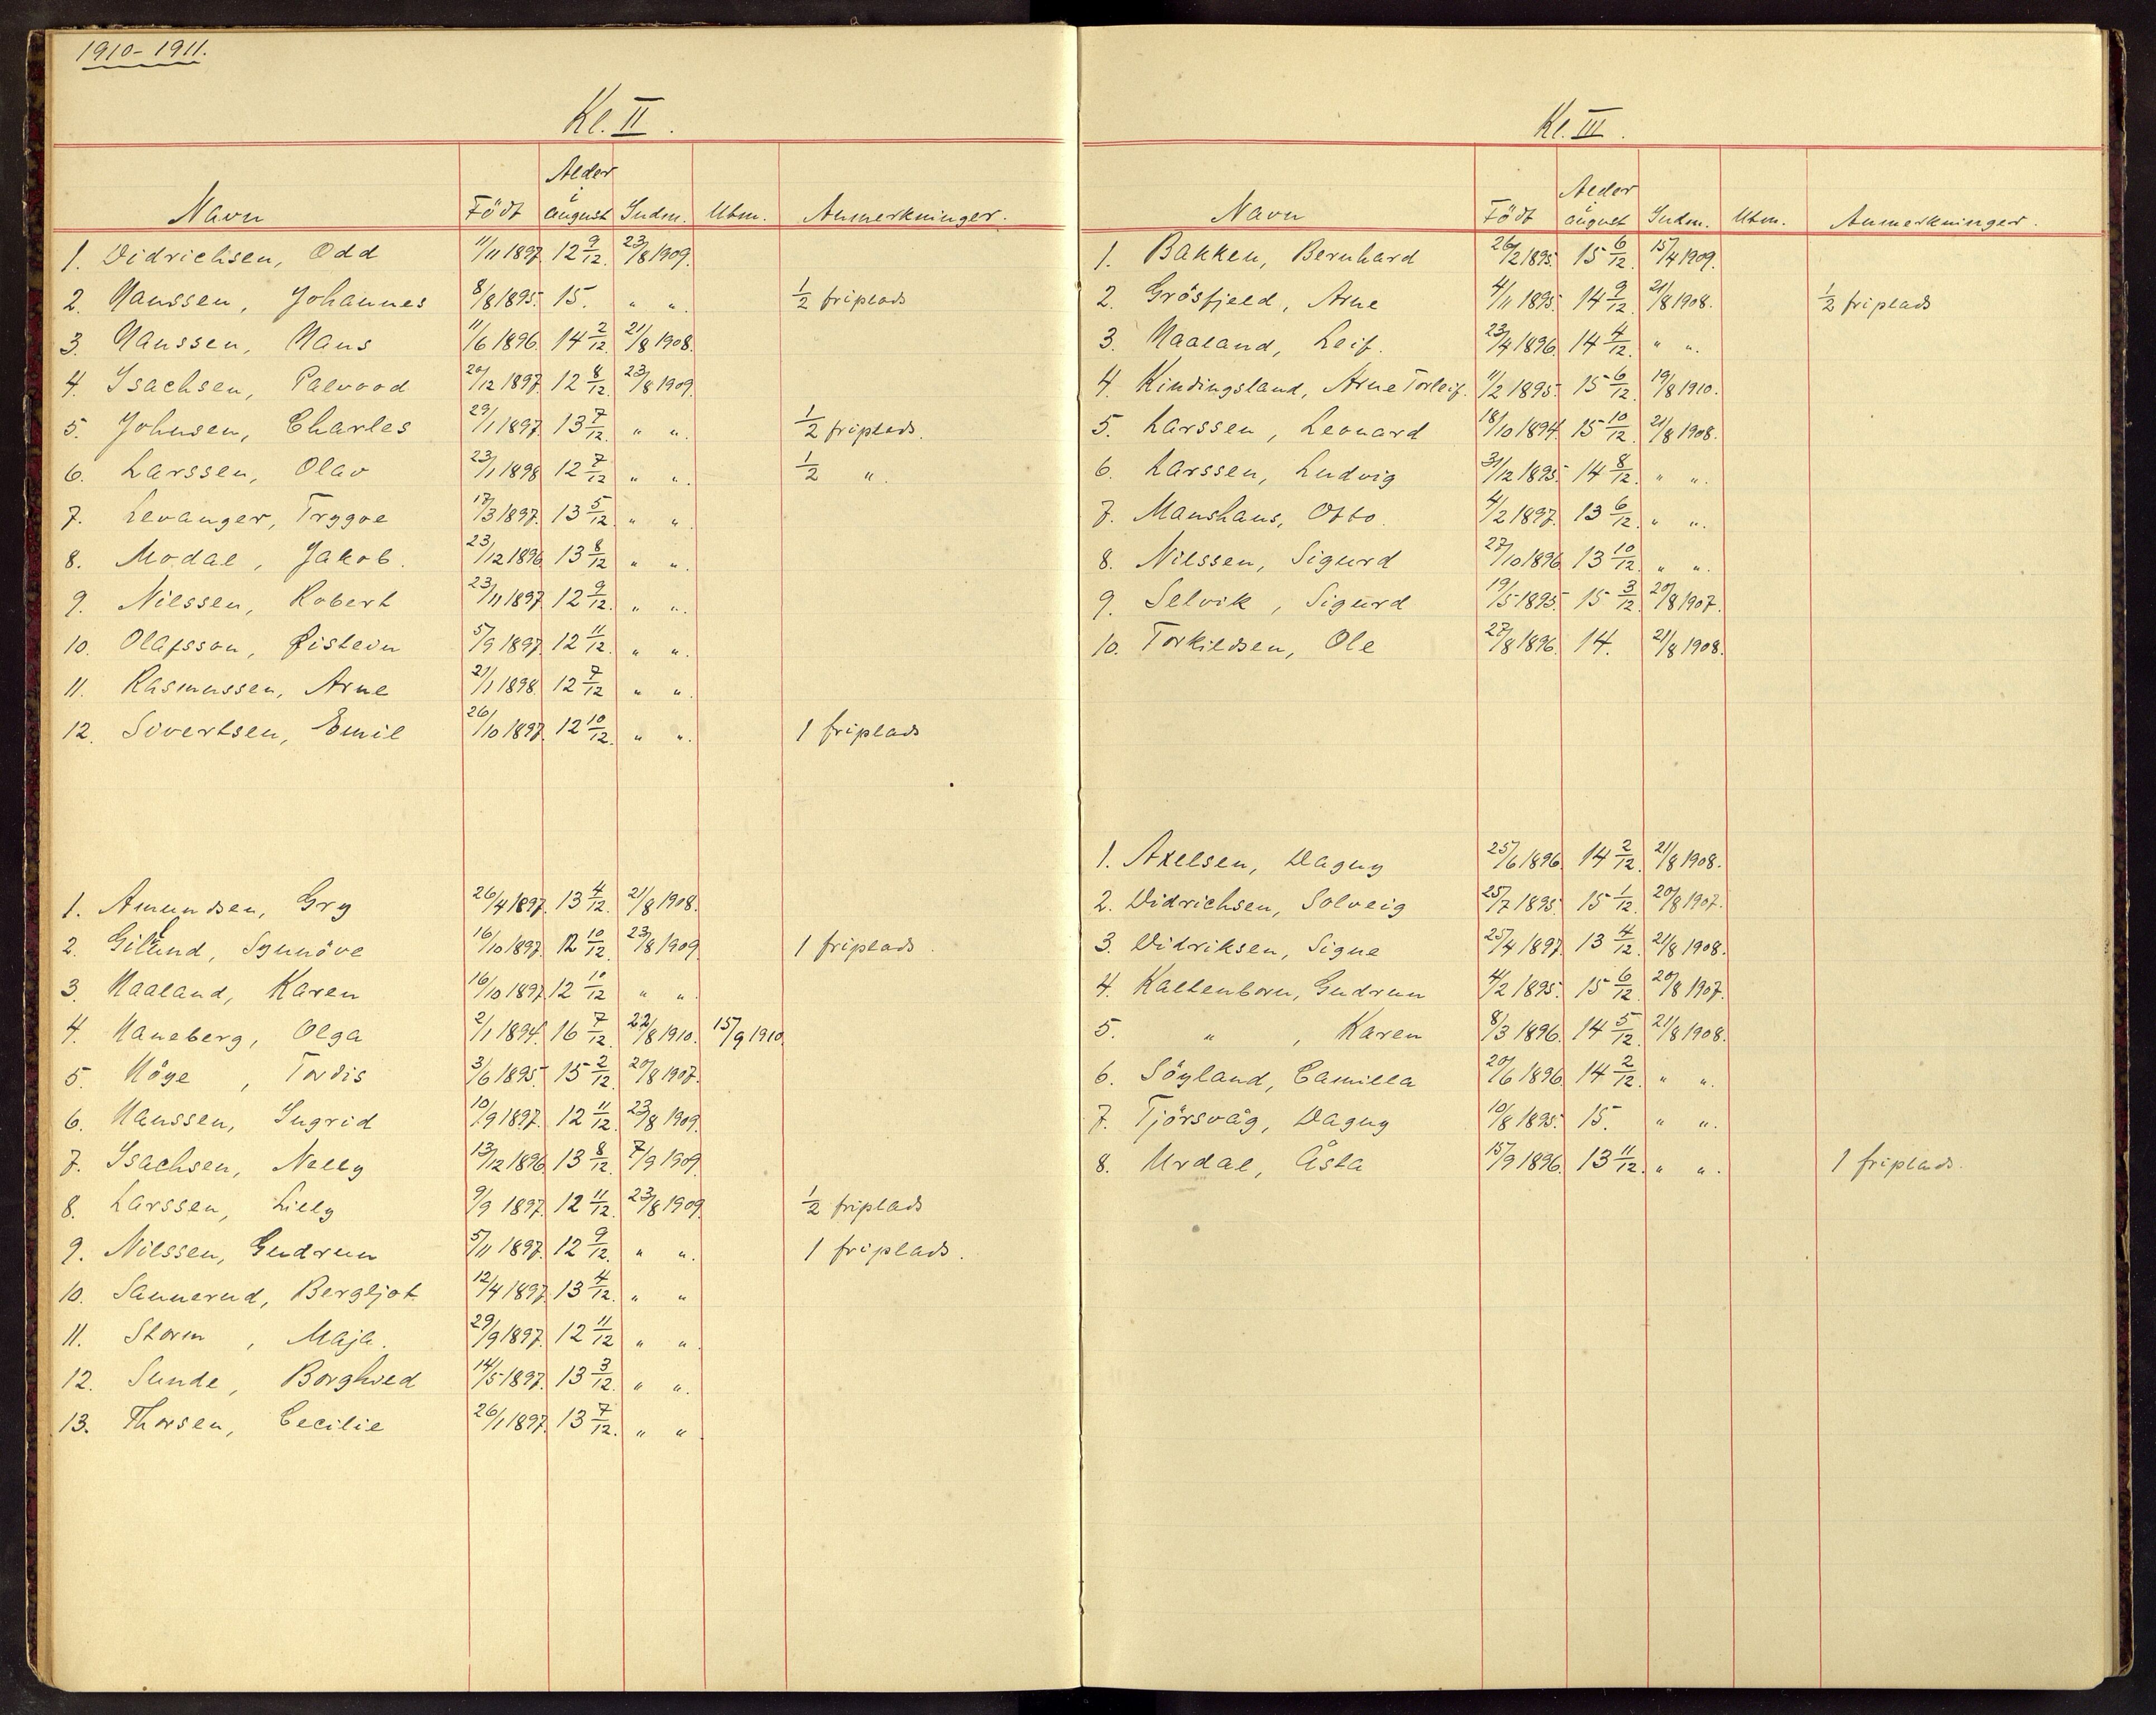 1910-1911.
Kl. II.
Navn Födt Alder i august Indm. Utm. Anmerkninger.
1. Didrichsen, Odd 11/11 1897. 12 9/12. 23/8 1909.
2. Hanssen, Johannes 8/8 1895. 15. " ". 1/2 friplads
3. Hanssen, Hans 11/6 1896. 14 2/12. 21/8 1908.
4. Isachsen, 20/12 1897. 12 8/12. 23/8 1909.
5. Johnsen, Charles 29/1 1897. 13 7/12. " ". 1/2 friplads.
6. Larssen, Olav 23/1 1898 12 7/12 " ". 1/2 ".
7. Levanger, Trygve 17/3 1897. 13 5/12. " ".
8. Modal, Jakob. 23/12 1896 13 8/12 " ".
9. Nilssen, Robert 23/11 1897 12 9/12. " ".
10. Olafsson, Eistein 5/9 1897. 12 11/12. " ".
11. Rasmussen, Arne 21/1 1898. 12 7/12 " ".
12. Sivertsen, Emil 26/10 1897. 12 10/12. " ". 1 friplads
1. Amundsen, Gry 26/4 1897. 13 4/12. 21/8 1908.
2. Gilund, Synnöve 16/10 1897. 12 10/12. 23/8 1909 1 friplads.
3. Haaland, Karen 16/10 1897. 12 10/12 " ".
4. Haneberg, Olga 2/1 1894. 16 7/12. 22/8 1910. 15/9 1910.
5. Höye, Tordis 3/6 1895. 15 2/12. 20/8 1907.
6. Hanssen, Ingrid 10/9 1897. 12 11/12. 23/8 1909.
7. Isachsen, Nelly 13/12 1896 13 8/12. 7/9 1909.
8. Larssen, Lilly 9/9 1897. 12 11/12. 23/8 1909. 1/2 friplads
9. Nilssen, Gudrun 5/11 1897. 12 9/12. " ". 1 friplads.
10. Sannerud, Bergljot 12/4 1897. 13 4/12. " "
11. Storm, Maja. 29/9 1897. 12 11/12 " ".
12. Sunde, Borghild 14/5 1897. 13 3/12. " ".
13. Thorsen, Cecilie 26/1 1897. 13 7/12. " ".
Kl. III.
Navn Födt Alder i august Indm. Utm. Anmerkninger.
1. Bakken, Bernhard 26/2 1895. 15 6/12. 15/4 1909.
2. Grösfjeld, Arne 4/11 1895. 14 9/12. 21/8 1908. 1/2 friplads
3. Haaland, Leif. 23/4 1896. 14 4/12. " ".
4. Kindingsland, Arne Torleif. 11/2 1895. 15 6/12. 19/8 1910.
5. Larssen, Leonard 18/10 1894. 15 10/12. 21/8 1908.
6. Larssen, Ludvig 31/12 1895. 14 8/12. " ".
7. Manshaus, Otto. 4/2 1897. 13 6/12. " ".
8. Nilssen, Sigurd 27/10 1896 13 10/12. " ".
9. Selvik, Sigurd 19/5 1895. 15 3/12. 20/8 1907.
10. Torkildsen, Ole 27/8 1896. 14. 21/8 1908.
1. Axelsen, Dagny 25/6 1896. 14 2/12. 21/8 1908.
2. Didrichsen, Solveig 25/7 1895. 15 1/12. 20/8 1907.
3. Didriksen, Signe 25/4 1897. 13 4/12. 21/8 1908.
4. Kaltenborn, Gudrun 4/2 1895. 15 6/12. 20/8 1907.
5. ", Karen 8/3 1896. 14 5/12. 21/8 1908.
6. Söyland, Camilla 20/6 1896. 14 2/12. " ".
7. Tjörsvåg, Dagny 10/8 1895. 15. " ".
8. Urdal, Åsta 15/9 1896. 13 11/12. " ". 1 friplads.